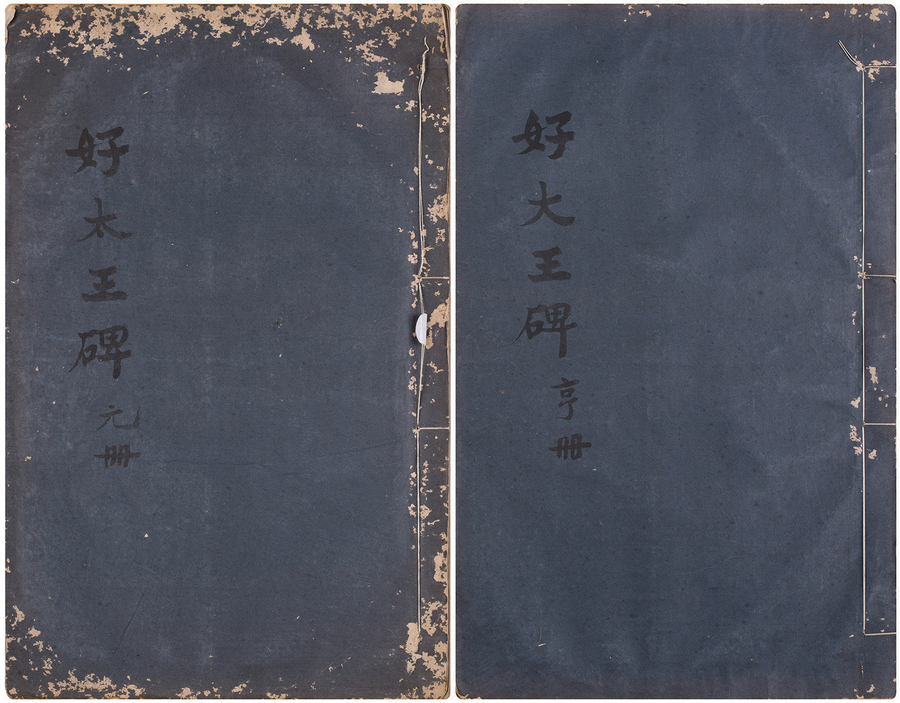 好太王碑 元册
好大王碑 亨册